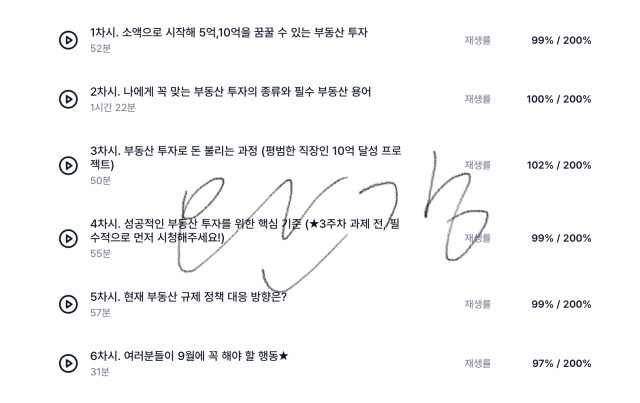 1차시. 소액으로 시작해 5억,10억을 꿈꿀 수 있는 부동산 투자
52분
재생률 99% / 200%
2차시. 나에게 꼭 맞는 부동산 투자의 종류와 필수 부동산 용어
1시간 22분
재생률 100% / 200%
3차시. 부동산 투자로 돈 불리는 과정 (평범한 직장인 10억 달성 프로
젝트)
50분
재생률 102% / 200%
4차시. 성공적인 부동산 투자를 위한 핵심 기준 (★3주차 과제 전, 필
수적으로 먼저 시청해주세요!)
55분
재생률 99% / 200%
5차시. 현재 부동산 규제 정책 대응 방향은?
57분
재생률 99% / 200%
6차시. 여러분들이 9월에 꼭 해야 할 행동★
31분
재생률 97% / 200%